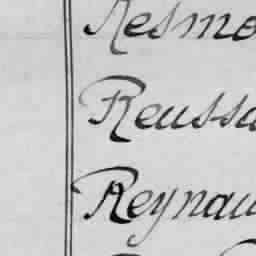 Resmo
Reussa
Reynau